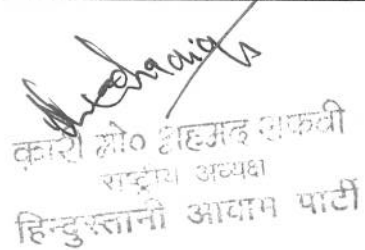 क़ारी मो० अहमद
राष्ट्रीय अध्यक्ष
हिन्दुस्तानी आवाम पार्टी